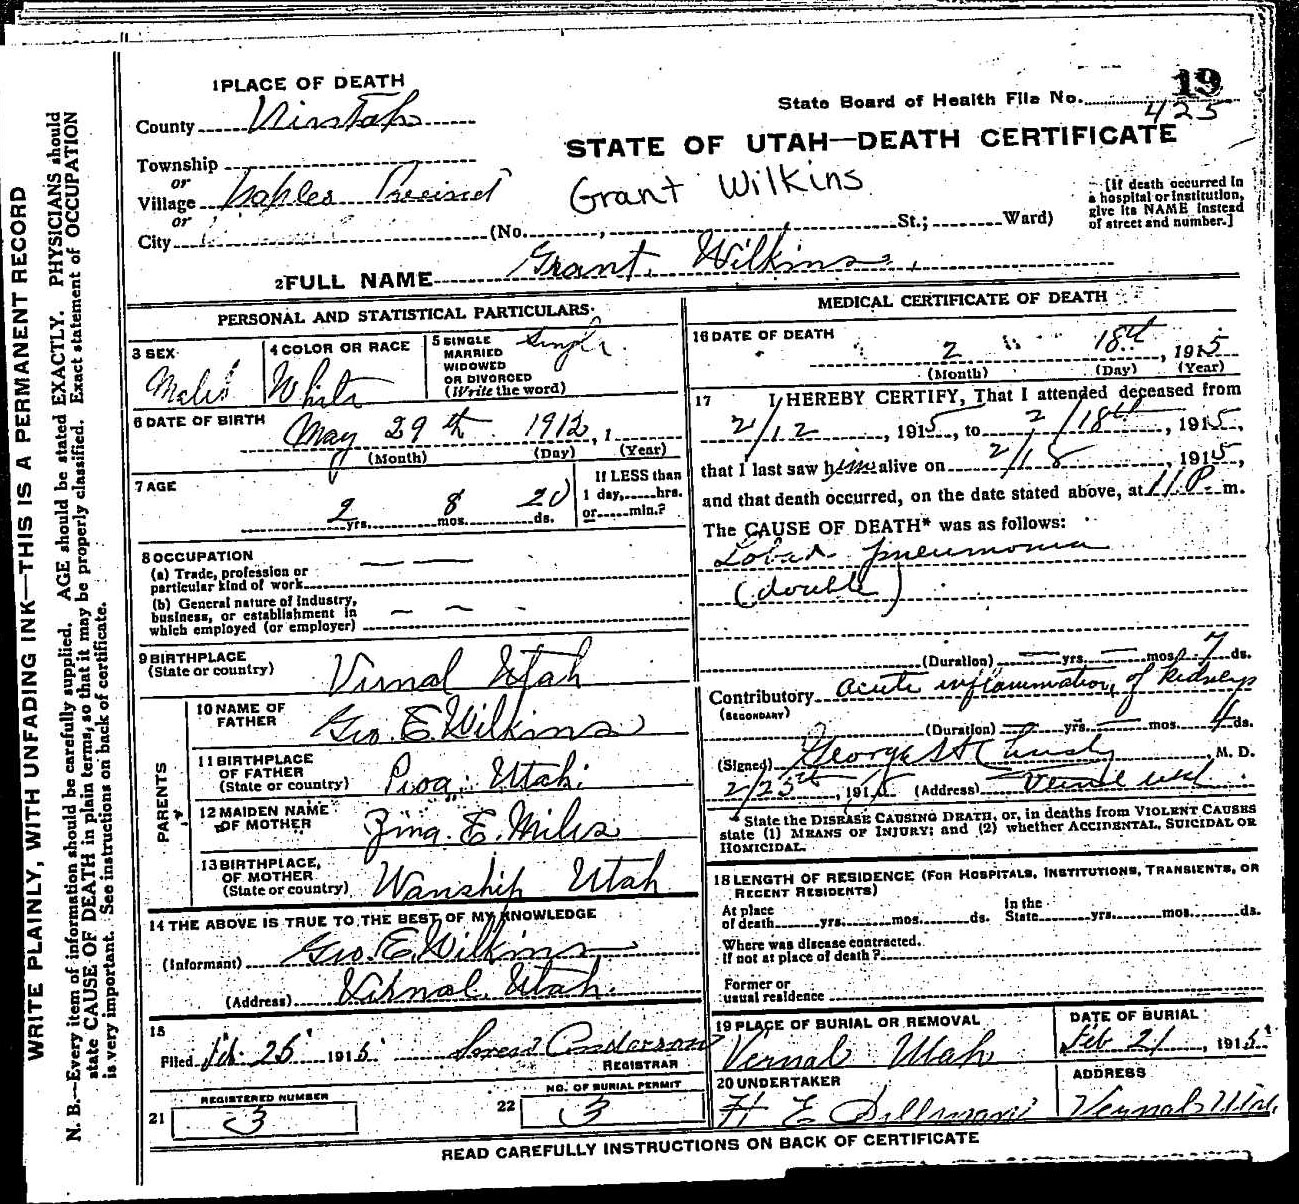 1 PLACE OF DEATH
19
State Board of Health File No. 425
County Uintah
STATE OF UTAH—DEATH CERTIFICATE
Township
or
Village Naples Precinct
Grant Wilkins
or
City (No. , St.; Ward)
[If death occurred in
a hospital or institution,
give its NAME instead
of street and number.]
2 FULL NAME Grant Wilkins
PERSONAL AND STATISTICAL PARTICULARS
3 SEX
Male
4 COLOR OR RACE
White
5 SINGLE
MARRIED
WIDOWED
OR DIVORCED
(Write the word)
Single
6 DATE OF BIRTH
May 29th 1912, 1
(Month) (Day) (Year)
7 AGE
2 yrs. 8 mos. 20 ds.
If LESS than
1 day, hrs.
or min.?
8 OCCUPATION
(a) Trade, profession or
particular kind of work
(b) General nature of industry,
business, or establishment in
which employed (or employer)
9 BIRTHPLACE
(State or country)
Virnal Utah
PARENTS
10 NAME OF
FATHER
Geo. E. Wilkins
11 BIRTHPLACE
OF FATHER
(State or country)
Utah
12 MAIDEN NAME
OF MOTHER
Zina. E. Miles
13 BIRTHPLACE,
OF MOTHER
(State or country)
Wanship Utah
14 THE ABOVE IS TRUE TO THE BEST OF MY KNOWLEDGE
(Informant) Geo. E. Wilkins
(Address) Virnal. Utah.
15
Filed Feb. 25 1915 Anderson
REGISTRAR
21
REGISTERED NUMBER
3
22
NO. OF BURIAL PERMIT
3
MEDICAL CERTIFICATE OF DEATH
16 DATE OF DEATH
2 18th, 1915
(Month) (Day) (Year)
17 I HEREBY CERTIFY, That I attended deceased from
2/12, 1915, to 2/18th, 1915,
that I last saw him alive on 2/18, 1915,
and that death occurred, on the date stated above, at 11 P. m.
The CAUSE OF DEATH* was as follows:
Lobar pneumonia
(double)
(Duration) — yrs. — mos. 7 ds.
Contributory acute inflammation of kidneys
(SECONDARY)
(Duration) — yrs. — mos. 4 ds.
(Signed) George M. D.
2/25th, 1915 (Address) Vernal Utah
*State the DISEASE CAUSING DEATH, or, in deaths from VIOLENT CAUSES
state (1) MEANS OF INJURY; and (2) whether ACCIDENTAL, SUICIDAL OR
HOMICIDAL.
18 LENGTH OF RESIDENCE (FOR HOSPITALS, INSTITUTIONS, TRANSIENTS, OR
RECENT RESIDENTS)
At place
of death yrs. mos. ds.
In the
State yrs. mos. ds.
Where was disease contracted.
If not at place of death?
Former or
usual residence
19 PLACE OF BURIAL OR REMOVAL
Vernal Utah
DATE OF BURIAL
Feb 21, 1915
20 UNDERTAKER
H E
ADDRESS
Vernal Utah
READ CAREFULLY INSTRUCTIONS ON BACK OF CERTIFICATE
WRITE PLAINLY, WITH UNFADING INK—THIS IS A PERMANENT RECORD
N. B.—Every item of information should be carefully supplied. AGE should be stated EXACTLY. PHYSICIANS should
state CAUSE OF DEATH in plain terms, so that it may be properly classified. Exact statement of OCCUPATION
is very important. See instructions on back of certificate.